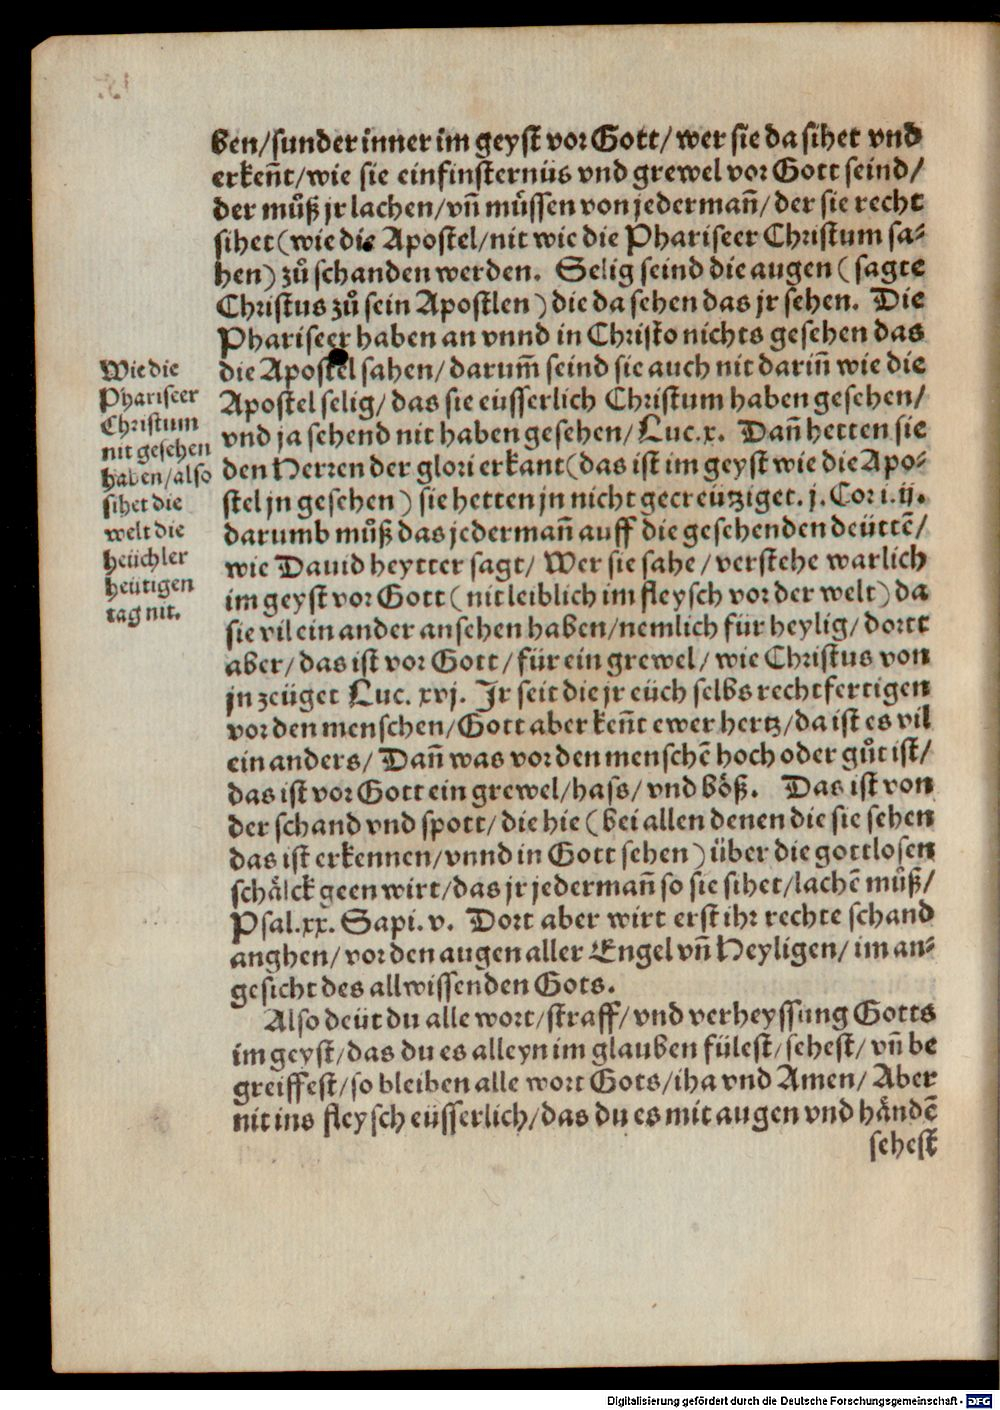 ben/sunder inner im geyst vor Gott/wer sie da sihet vnd
erkeñt/wie sie ein finsternüs vnd grewel vor Gott seind/
der můß jr lachen/vñ müssen von jedermañ/der sie recht
sihet (wie die Apostel/nit wie die Phariseer Christum sa-
hen) zů schanden werden. Selig seind die augen (sagte
Christus zů sein Apostlen) die da sehen das jr sehen. Die
Phariseer haben an vnnd in Christo nichts gesehen das
die Apostel sahen/darum̃ seind sie auch nit dariñ wie die
Apostel selig/das sie eüsserlich Christum haben gesehen/
vnd ja sehend nit haben gesehen/Luc.x. Dañ hetten sie
den Herren der glori erkant (das ist im geyst wie die Apo-
stel jn gesehen) sie hetten jn nicht gecreütziget. j. Cor i. ij.
darumb můß das jedermañ auff die gesehenden deüttẽ/
wie Dauid heytter sagt/Wer sie sahe/verstehe warlich
im geyst vor Gott (nit leiblich im fleysch vor der welt) da
sie vil ein ander ansehen haben/nemlich für heylig/dortt
aber/das ist vor Gott/für ein grewel/wie Christus von
jn zeüget Luc. xvj. Jr seit die jr eüch selbs rechtfertigen
vor den menschen/Gott aber keñt ewer hertz/da ist es vil
ein anders/Dañ was vor den menschẽ hoch oder gůt ist/
das ist vor Gott ein grewel/hass/vnd böß. Das ist von
der schand vnd spott/die hie (bei allen denen die sie sehen
das ist erkennen/vnnd in Gott sehen) über die gottlosen
schälck geen wirt/das jr jedermañ so sie sihet/lachẽ můß/
Psal.xx. Sapi. v. Dort aber wirt erst ihr rechte schand
anghen/vor den augen aller Engel vñ Heyligen/im an-
gesicht des allwissenden Gots.
Also deüt du alle wort/straff/vnd verheyssung Gotts
im geyst/das du es alleyn im glauben fülest/sehest/vñ be
greiffest/so bleiben alle wort Gots/iha vnd Amen/Aber
nit ins fleysch eüsserlich/das du es mit augen vnd händẽ
sehest
Wie die
Phariseer
Christum
nit gesehen
haben/also
sihet die
welt die
heüchler
heütigen
tag nit.
Digitalisierung gefördert durch die Deutsche Forschungsgemeinschaft - DFG